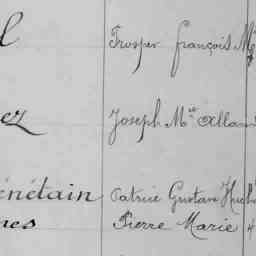 l Prosper François M
ez Joseph Mie Allan
énétain Patrice Gustave Huch
nes Pierre Marie